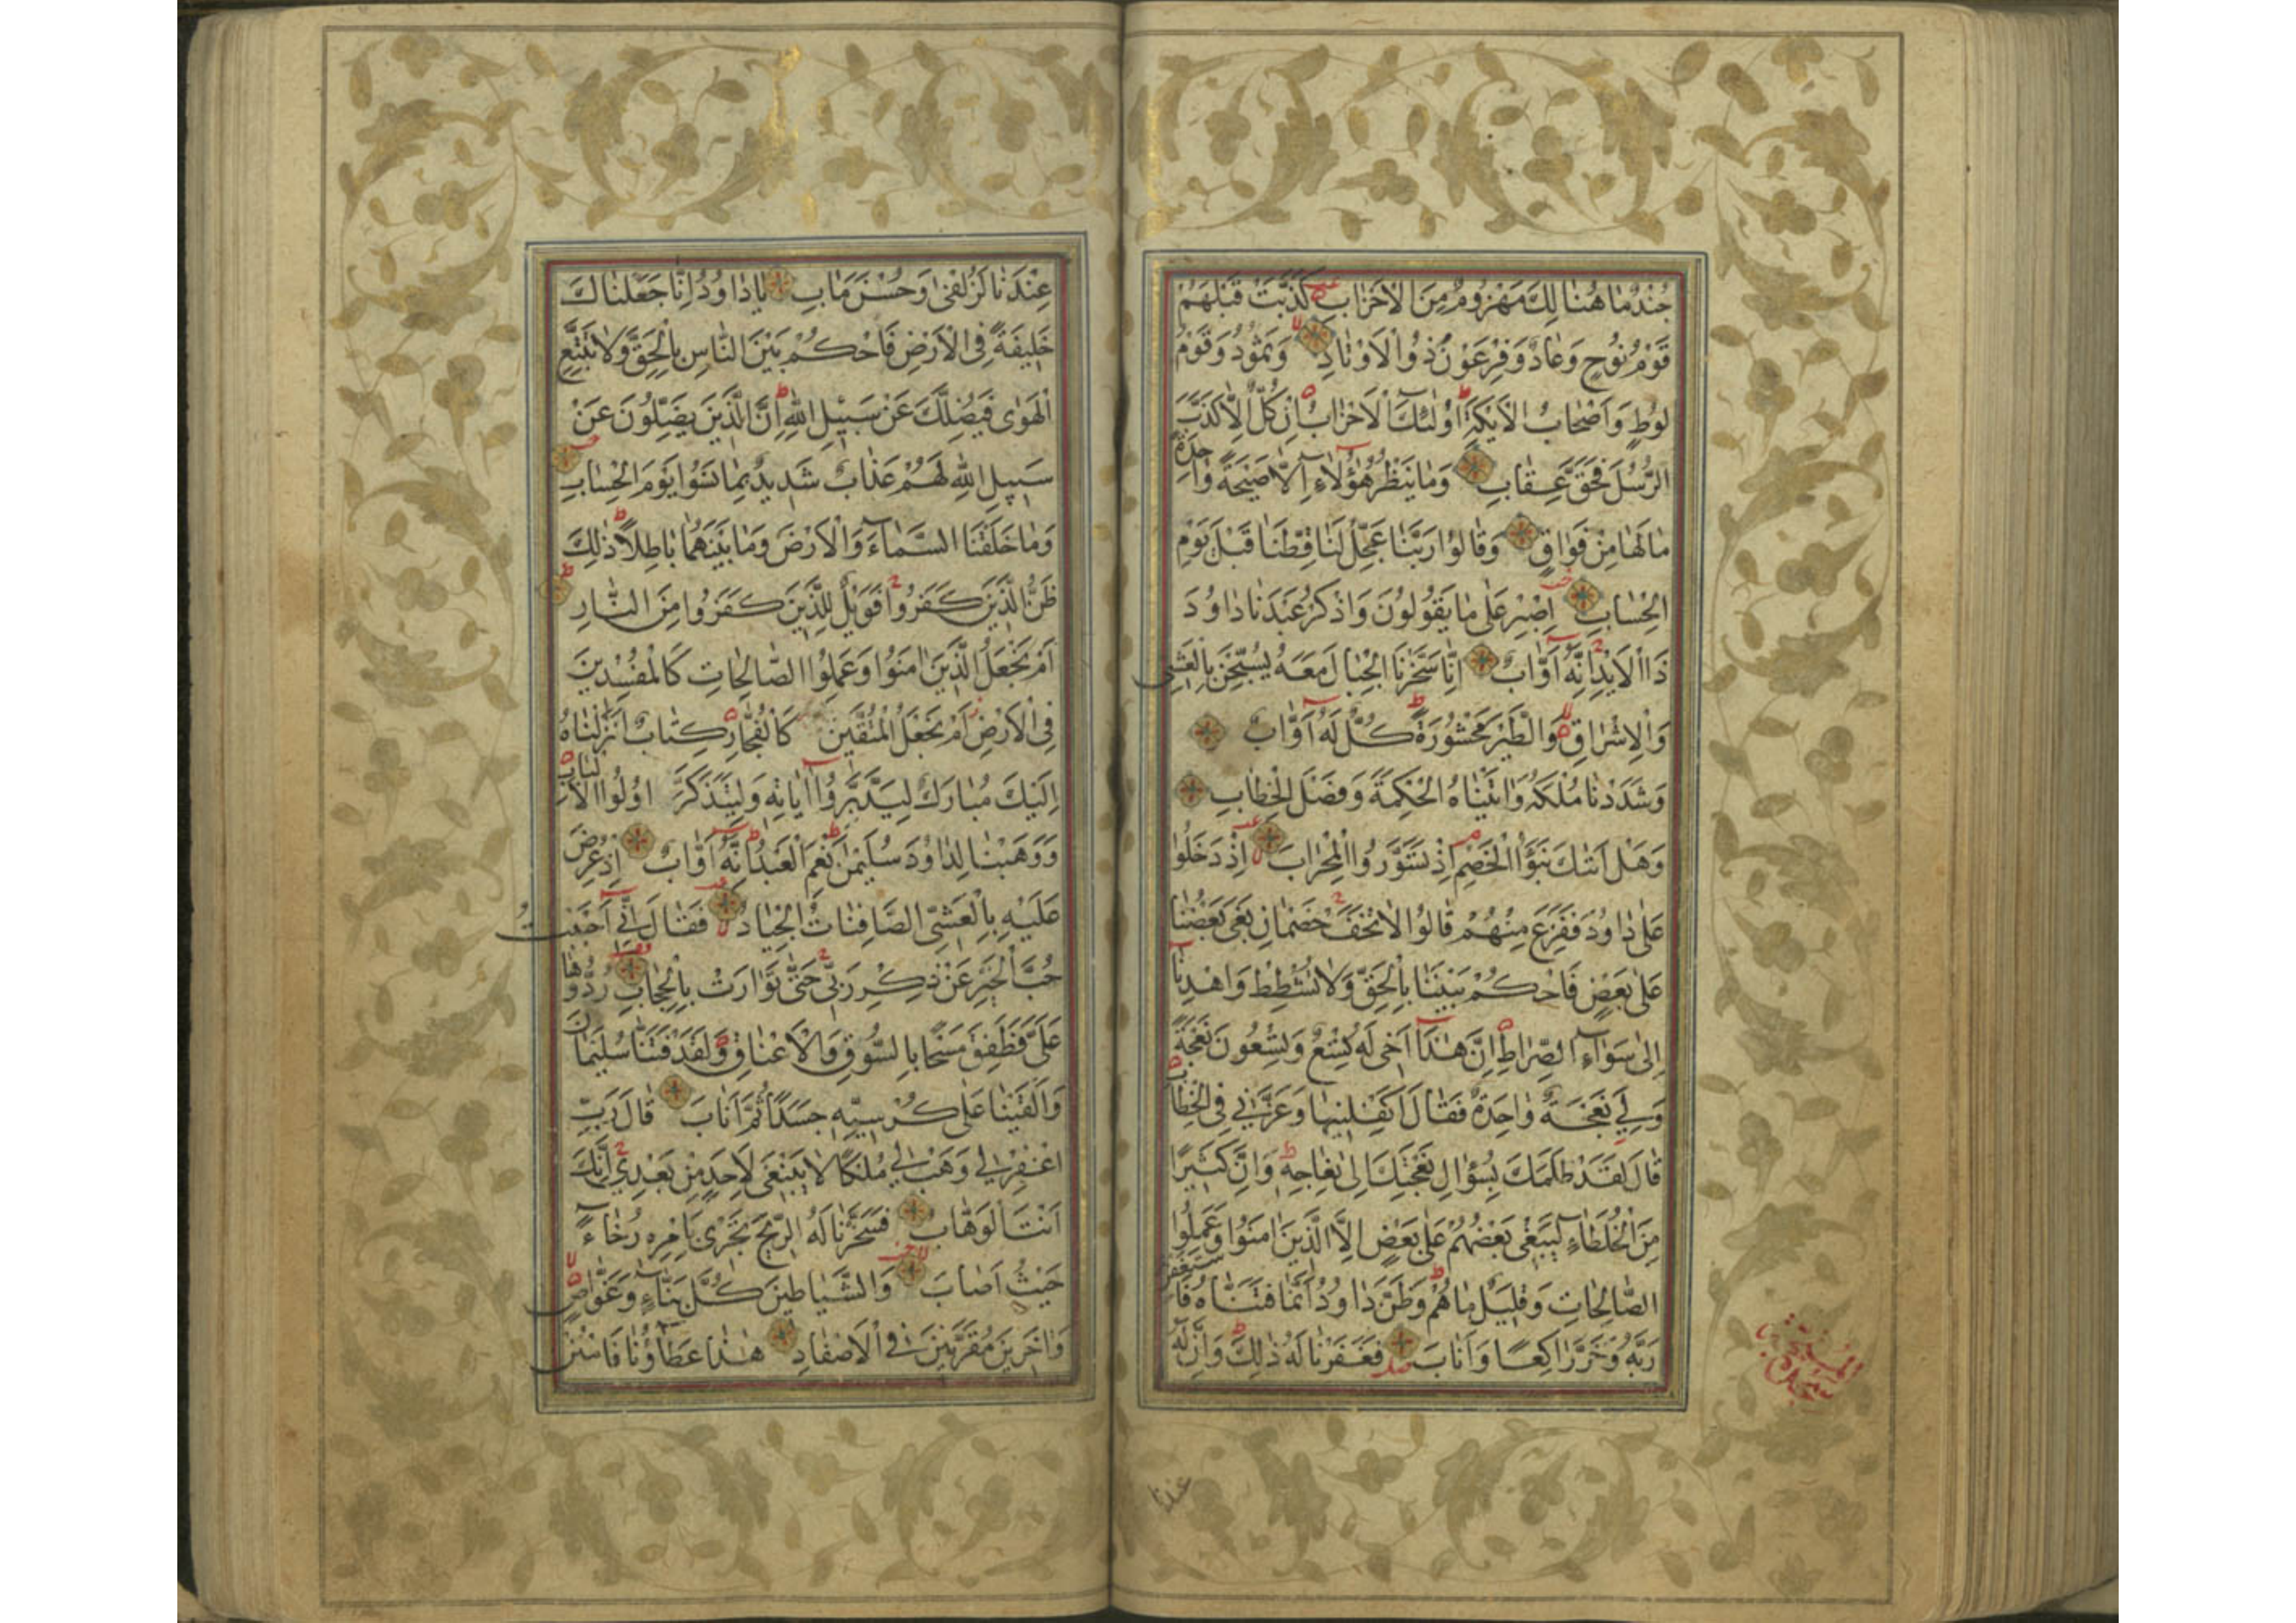 جُنْدٌ مَا هُنَالِكَ مَهْزُومٌ مِنَ الْاَحْزَابِ كَذَّبَتْ قَبْلَهُمْ
قَوْمُ نُوحٍ وَعَادٌ وَفِرْعَوْنُ ذُو الْاَوْتَادِ وَثَمُودُ وَقَوْمُ
لُوطٍ وَاَصْحَابُ الْاَيْكَةِ اُولٰئِكَ الْاَحْزَابُ اِنْ كُلٌّ اِلَّا كَذَّبَ
الرُّسُلَ فَحَقَّ عِقَابِ وَمَا يَنْظُرُ هٰؤُلَاءِ اِلَّا صَيْحَةً وَاحِدَةً
مَا لَهَا مِنْ فَوَاقٍ وَقَالُوا رَبَّنَا عَجِّلْ لَنَا قِطَّنَا قَبْلَ يَوْمِ
الْحِسَابِ اِصْبِرْ عَلٰى مَا يَقُولُونَ وَاذْكُرْ عَبْدَنَا دَاوُدَ
ذَا الْاَيْدِ اِنَّهُ اَوَّابٌ اِنَّا سَخَّرْنَا الْجِبَالَ مَعَهُ يُسَبِّحْنَ بِالْعَشِيِّ
وَالْاِشْرَاقِ وَالطَّيْرَ مَحْشُورَةً كُلٌّ لَهُ اَوَّابٌ
وَشَدَدْنَا مُلْكَهُ وَاٰتَيْنَاهُ الْحِكْمَةَ وَفَصْلَ الْخِطَابِ
وَهَلْ اَتٰكَ نَبَؤُا الْخَصْمِ اِذْ تَسَوَّرُوا الْمِحْرَابَ اِذْ دَخَلُوا
عَلٰى دَاوُدَ فَفَزِعَ مِنْهُمْ قَالُوا لَا تَخَفْ خَصْمَانِ بَغٰى بَعْضُنَا
عَلٰى بَعْضٍ فَاحْكُمْ بَيْنَنَا بِالْحَقِّ وَلَا تُشْطِطْ وَاهْدِنَا
اِلٰى سَوَاءِ الصِّرَاطِ اِنَّ هٰذَا اَخِي لَهُ تِسْعٌ وَتِسْعُونَ نَعْجَةً
وَلِيَ نَعْجَةٌ وَاحِدَةٌ فَقَالَ اَكْفِلْنِيهَا وَعَزَّنِي فِي الْخِطَابِ
قَالَ لَقَدْ ظَلَمَكَ بِسُؤَالِ نَعْجَتِكَ اِلٰى نِعَاجِهِ وَاِنَّ كَثِيرًا
مِنَ الْخُلَطَاءِ لَيَبْغِي بَعْضُهُمْ عَلٰى بَعْضٍ اِلَّا الَّذِينَ اٰمَنُوا وَعَمِلُوا
الصَّالِحَاتِ وَقَلِيلٌ مَا هُمْ وَظَنَّ دَاوُدُ اَنَّمَا فَتَنَّاهُ فَاسْتَغْفَرَ
رَبَّهُ وَخَرَّ رَاكِعًا وَاَنَابَ فَغَفَرْنَا لَهُ ذٰلِكَ وَاِنَّ لَهُ
عندنا
عِنْدَنَا لَزُلْفٰى وَحُسْنَ مَاٰبٍ يَا دَاوُدُ اِنَّا جَعَلْنَاكَ
خَلِيفَةً فِي الْاَرْضِ فَاحْكُمْ بَيْنَ النَّاسِ بِالْحَقِّ وَلَا تَتَّبِعِ
الْهَوٰى فَيُضِلَّكَ عَنْ سَبِيلِ اللّٰهِ اِنَّ الَّذِينَ يَضِلُّونَ عَنْ
سَبِيلِ اللّٰهِ لَهُمْ عَذَابٌ شَدِيدٌ بِمَا نَسُوا يَوْمَ الْحِسَابِ
وَمَا خَلَقْنَا السَّمَاءَ وَالْاَرْضَ وَمَا بَيْنَهُمَا بَاطِلًا ذٰلِكَ
ظَنُّ الَّذِينَ كَفَرُوا فَوَيْلٌ لِلَّذِينَ كَفَرُوا مِنَ النَّارِ
اَمْ نَجْعَلُ الَّذِينَ اٰمَنُوا وَعَمِلُوا الصَّالِحَاتِ كَالْمُفْسِدِينَ
فِي الْاَرْضِ اَمْ نَجْعَلُ الْمُتَّقِينَ كَالْفُجَّارِ كِتَابٌ اَنْزَلْنَاهُ
اِلَيْكَ مُبَارَكٌ لِيَدَّبَّرُوا اٰيَاتِهِ وَلِيَتَذَكَّرَ اُولُوا الْاَلْبَابِ
وَوَهَبْنَا لِدَاوُدَ سُلَيْمٰنَ نِعْمَ الْعَبْدُ اِنَّهُ اَوَّابٌ اِذْ عُرِضَ
عَلَيْهِ بِالْعَشِيِّ الصَّافِنَاتُ الْجِيَادُ فَقَالَ اِنِّي اَحْبَبْتُ
حُبَّ الْخَيْرِ عَنْ ذِكْرِ رَبِّي حَتّٰى تَوَارَتْ بِالْحِجَابِ رُدُّوهَا
عَلَيَّ فَطَفِقَ مَسْحًا بِالسُّوقِ وَالْاَعْنَاقِ وَلَقَدْ فَتَنَّا سُلَيْمَانَ
وَاَلْقَيْنَا عَلٰى كُرْسِيِّهِ جَسَدًا ثُمَّ اَنَابَ قَالَ رَبِّ
اغْفِرْ لِي وَهَبْ لِي مُلْكًا لَا يَنْبَغِي لِاَحَدٍ مِنْ بَعْدِي اِنَّكَ
اَنْتَ الْوَهَّابُ فَسَخَّرْنَا لَهُ الرِّيحَ تَجْرِي بِاَمْرِهِ رُخَاءً
حَيْثُ اَصَابَ وَالشَّيَاطِينَ كُلَّ بَنَّاءٍ وَغَوَّاصٍ
وَاٰخَرِينَ مُقَرَّنِينَ فِي الْاَصْفَادِ هٰذَا عَطَاؤُنَا فَامْنُنْ